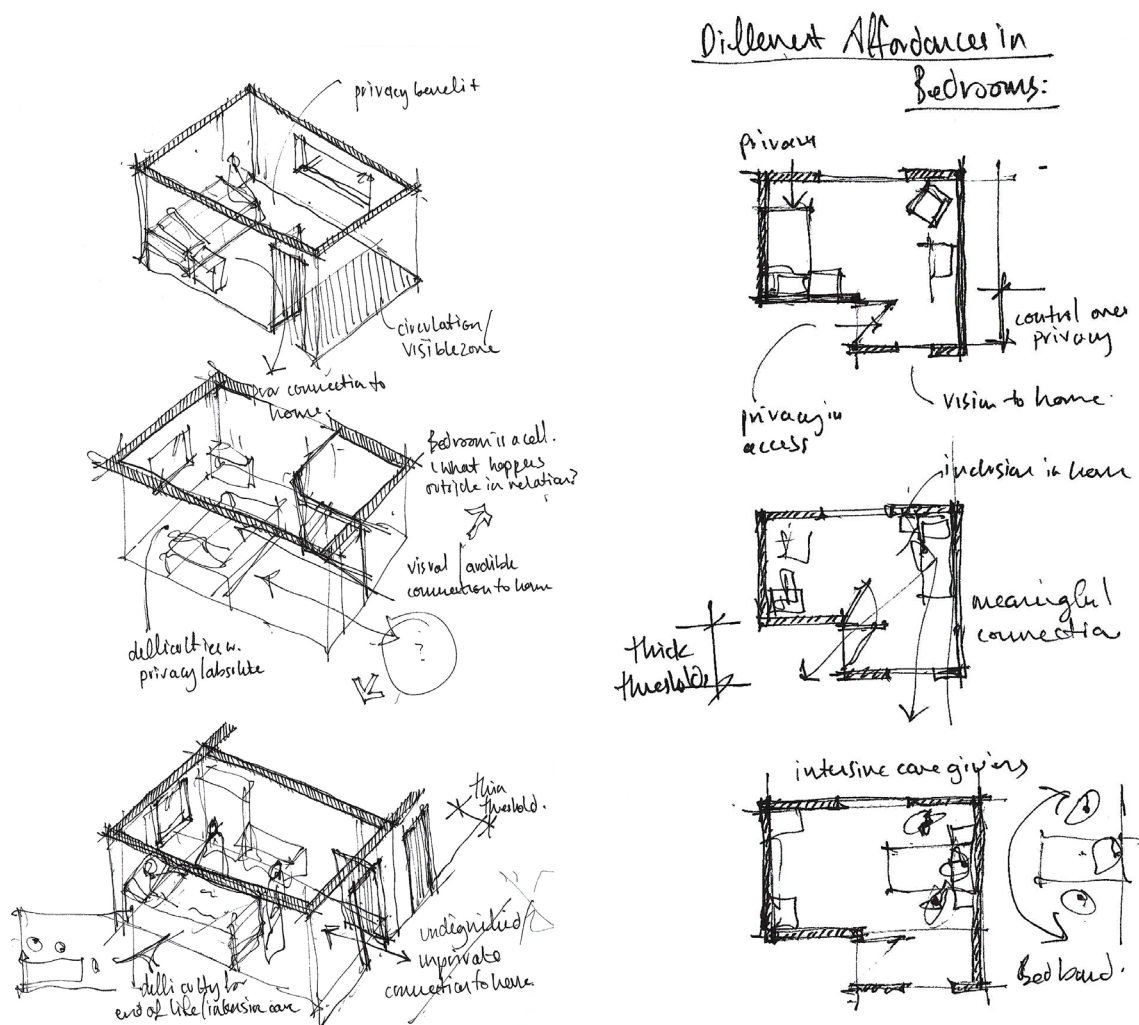 Different Affordances in
Bedrooms:
privacy benefit
circulation/
visible zone
poor connection to
home.
Bedroom is a cell.
what happens
outside in relation?
visual / audible
connection to home
?
difficulties w.
privacy/absolute
thin
threshold.
undignified/
unprivate
connection to home
difficulty for
end of life/intensive care
privacy
control over
privacy
vision to home.
privacy in
access
inclusion in home
meaningful
connection
thick
thresholds
intensive care givers
Bed band.